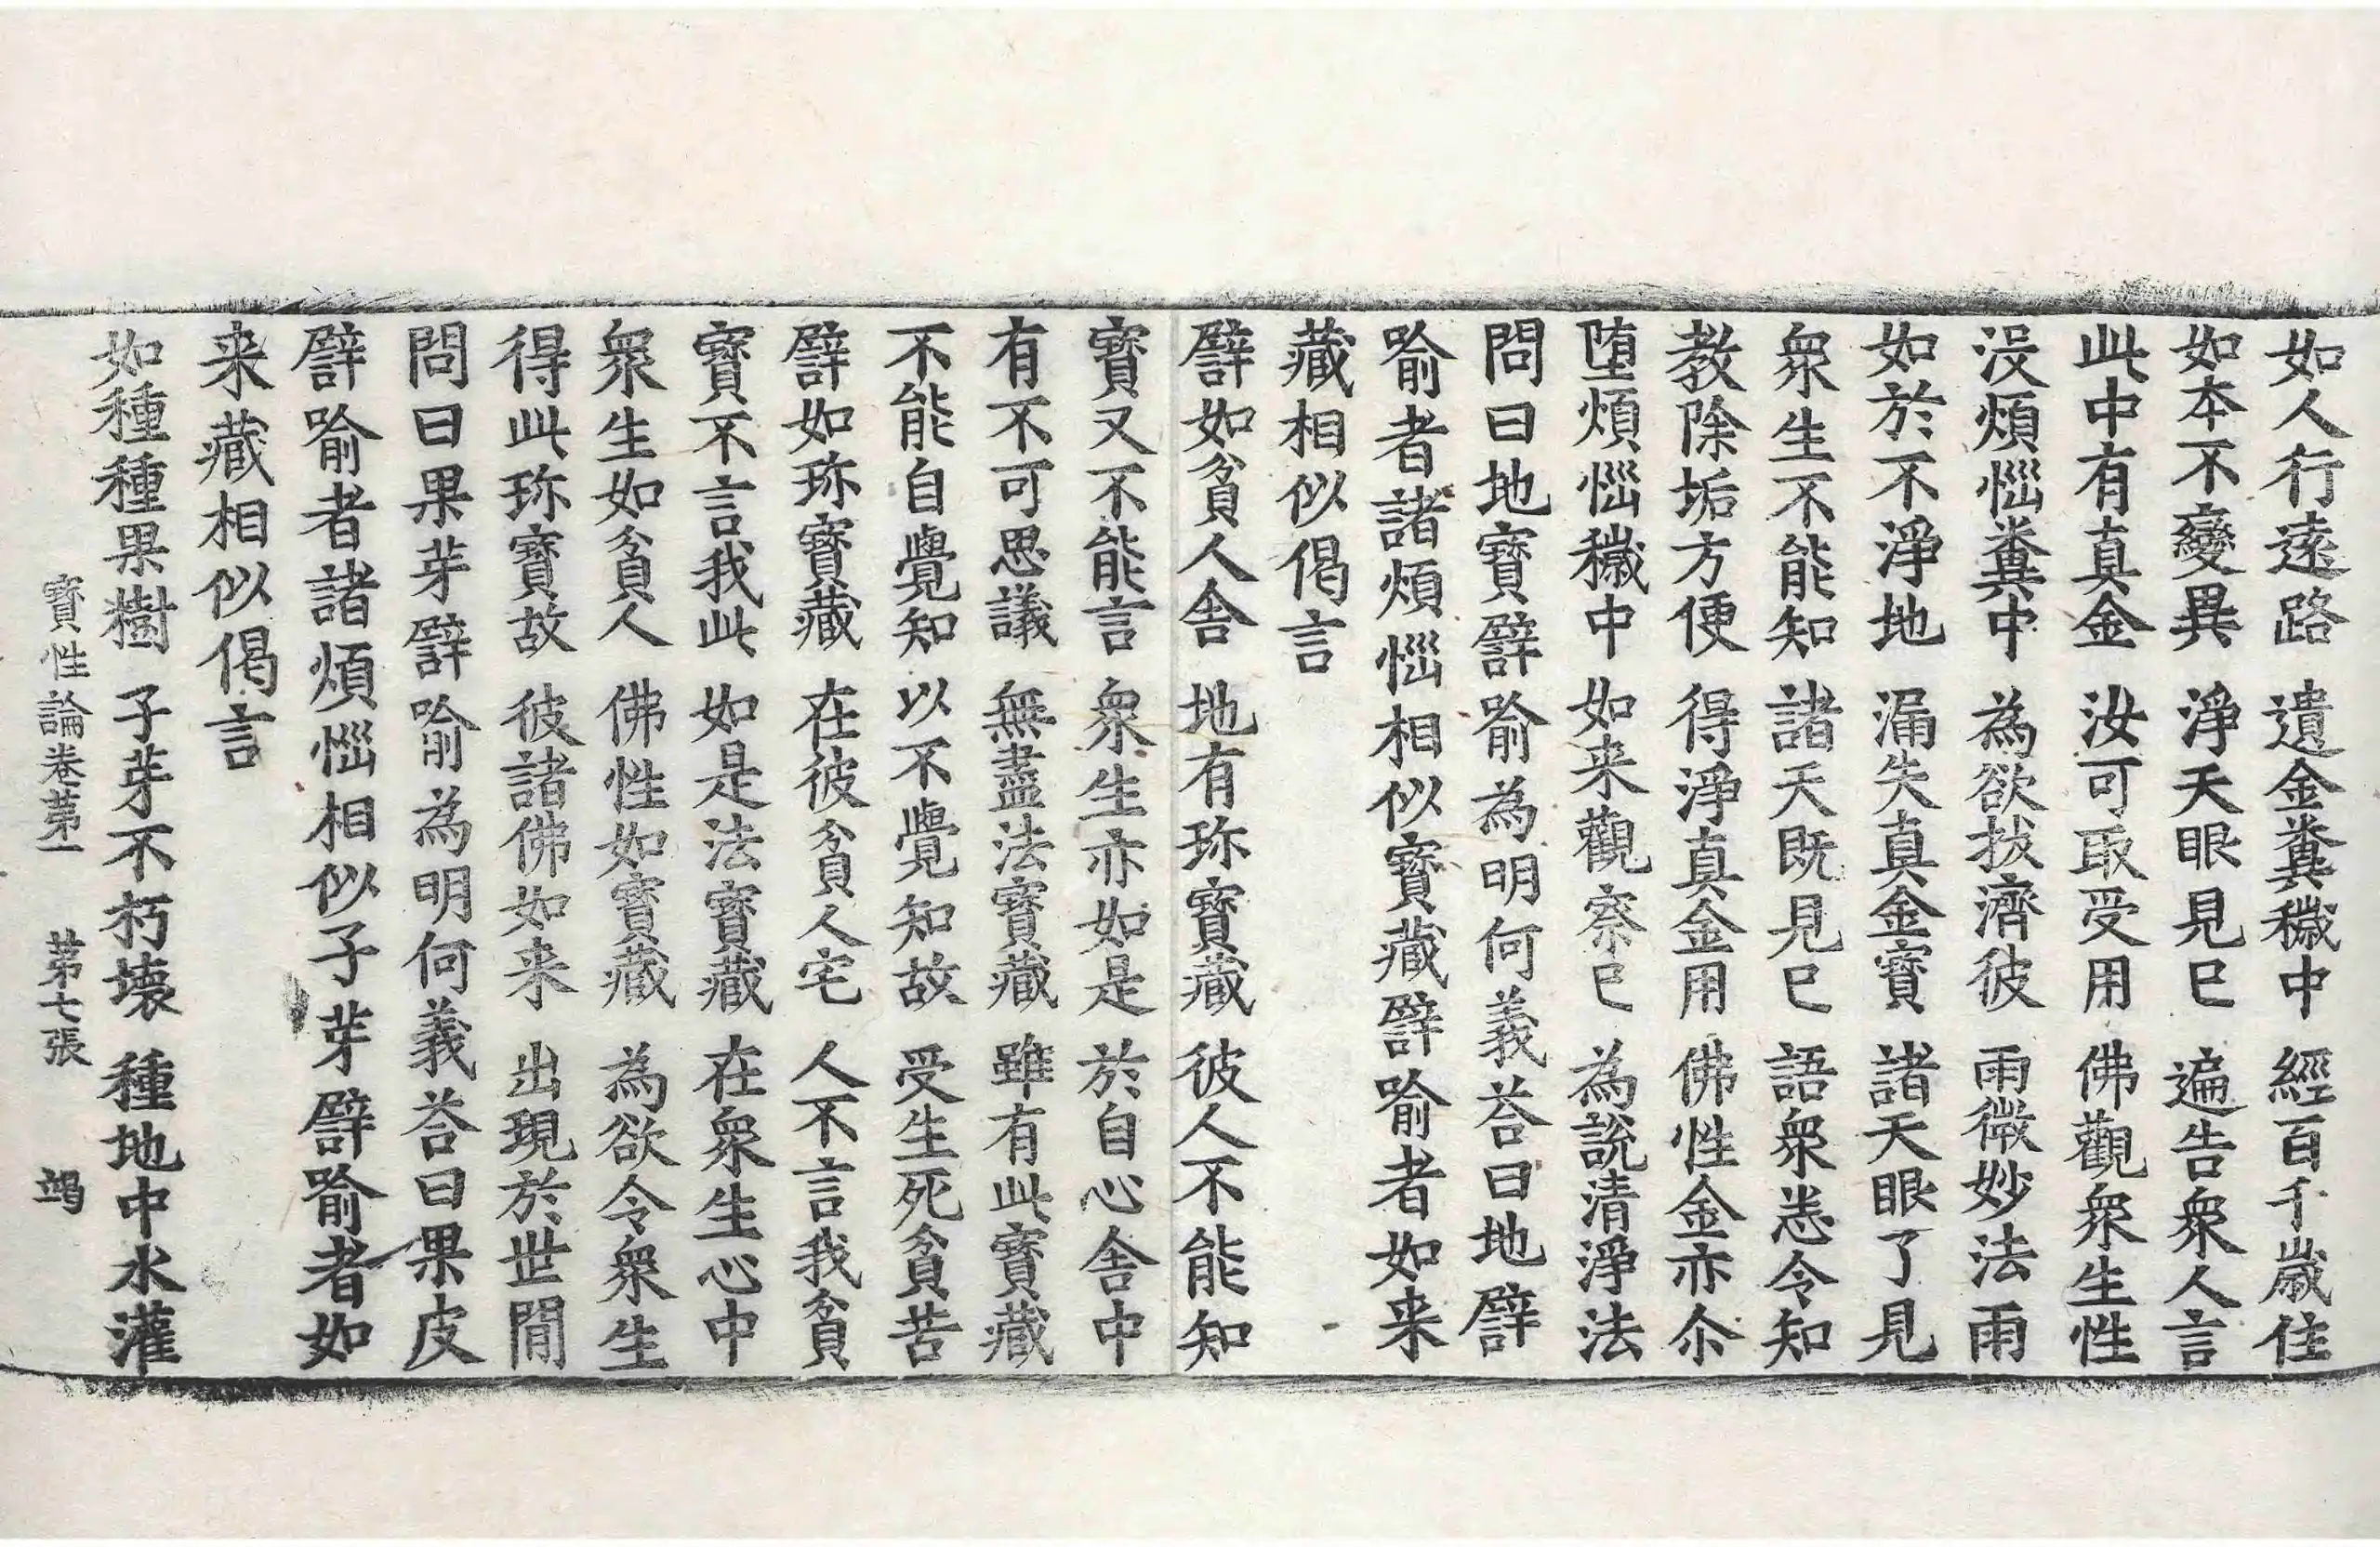 如人行遠路　遺金糞穢中　經百千歲住
如本不變異　淨天眼見已　遍告衆人言
此中有真金　汝可取受用　佛觀衆生性
沒煩惱糞中　為欲拔濟彼　雨微妙法雨
如於不淨地　漏失真金寶　諸天眼了見
衆生不能知　諸天既見已　語衆悉令知
教除垢方便　得淨真金用　佛性金亦尒
堕煩惱穢中　如来觀察已　為說清淨法
問曰地寶譬喻為明何義荅曰地譬
喻者諸煩惱相似寶藏譬喻者如来
藏相似偈言
譬如貧人舍　地有珎寶藏　彼人不能知
寶又不能言　衆生亦如是　於自心舍中
有不可思議　無盡法寶藏　雖有此寶藏
不能自覺知　以不覺知故　受生死貧苦
譬如珎寶藏　在彼貧人宅　人不言我貧
寶不言我此　如是法寶藏　在衆生心中
衆生如貧人　佛性如寶藏　為欲令衆生
得此珎寶故　彼諸佛如来　出現於世間
問曰果芽譬喻為明何義荅曰果皮
譬喻者諸煩惱相似子芽譬喻者如
来藏相似偈言
如種種果樹　子芽不朽壞　種地中水灌
寶性論卷第一　第七張